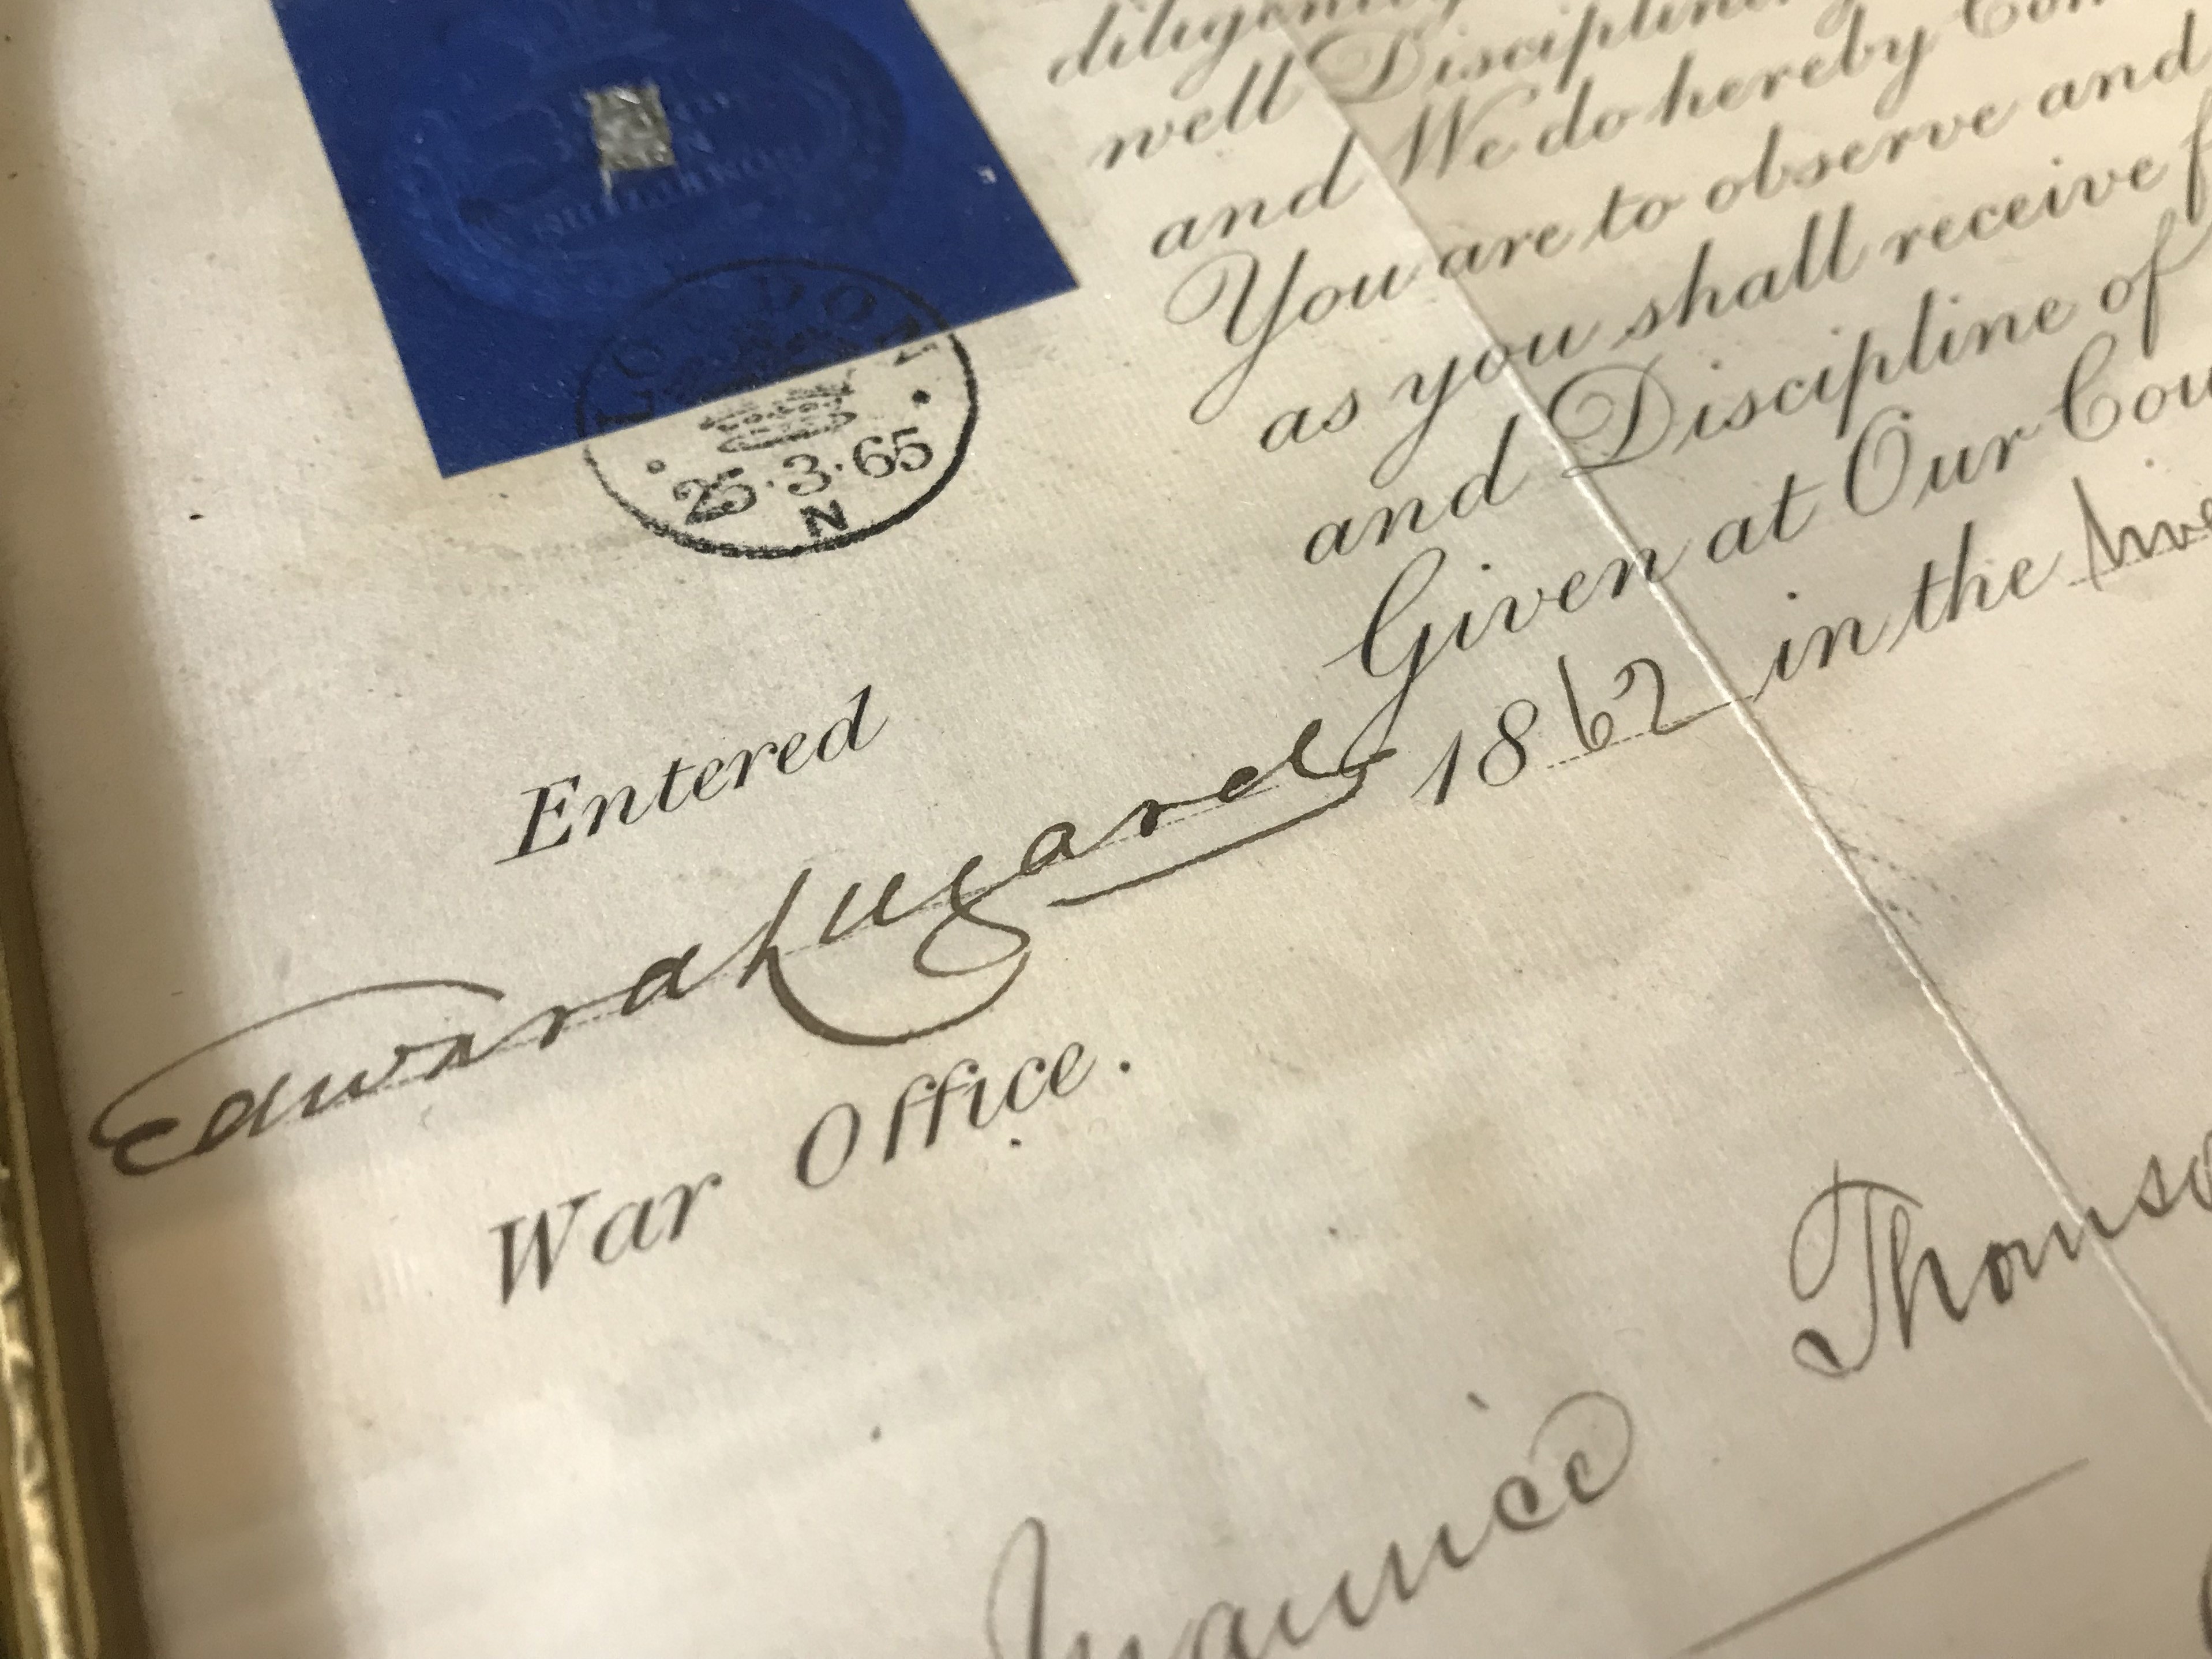 well Disciplin
and We do hereby Com
You are to observe and
as you shall receive f
and Discipline of
Given at Our Cou
1862 in the
LONDON
25·3·65
N
Entered
Edward Lugard
War Office.
Maurice Thomso